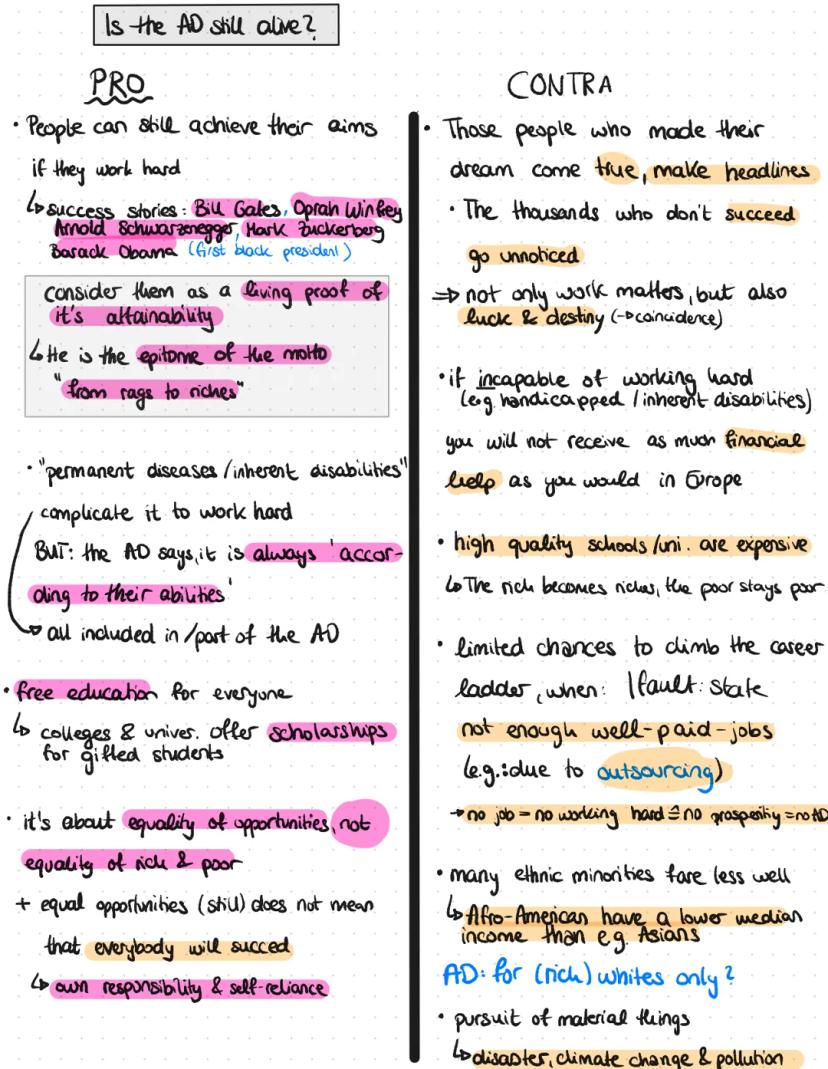 Is the AD still alive?
PRO
• People can still achieve their aims
if they work hard
↳ success stories: Bill Gates, Oprah Winfrey
Arnold Schwarzenegger, Mark Zuckerberg
Barack Obama (first black president)
consider them as a living proof of
it's attainability
↳ He is the epitome of the motto
"from rags to riches"
• "permanent diseases/inherent disabilities"
complicate it to work hard
BUT: the AD says, it is always 'accor-
ding to their abilities'
→ all included in/part of the AD
• free education for everyone
↳ colleges & univer. offer scholarships
for gifted students
• it's about equality of opportunities, not
equality of rich & poor
+ equal opportunities (still) does not mean
that everybody will succed
↳ own responsibility & self-reliance
CONTRA
• Those people who made their
dream come true, make headlines
• The thousands who don't succeed
go unnoticed
⇒ not only work matters, but also
luck & destiny (→ coincidence)
• if incapable of working hard
(e.g. handicapped / inherent disabilities)
you will not receive as much financial
help as you would in Europe
• high quality schools/uni. are expensive
↳ The rich becomes richer, the poor stays poor
• limited chances to climb the career
ladder, when: | fault: state
not enough well-paid-jobs
(e.g.: due to outsourcing)
→ no job = no working hard ≙ no prosperity = no AD
• many ethnic minorities fare less well
↳ Afro-American have a lower median
income than e.g. Asians
AD: for (rich) whites only?
• pursuit of material things
↳ disaster, climate change & pollution